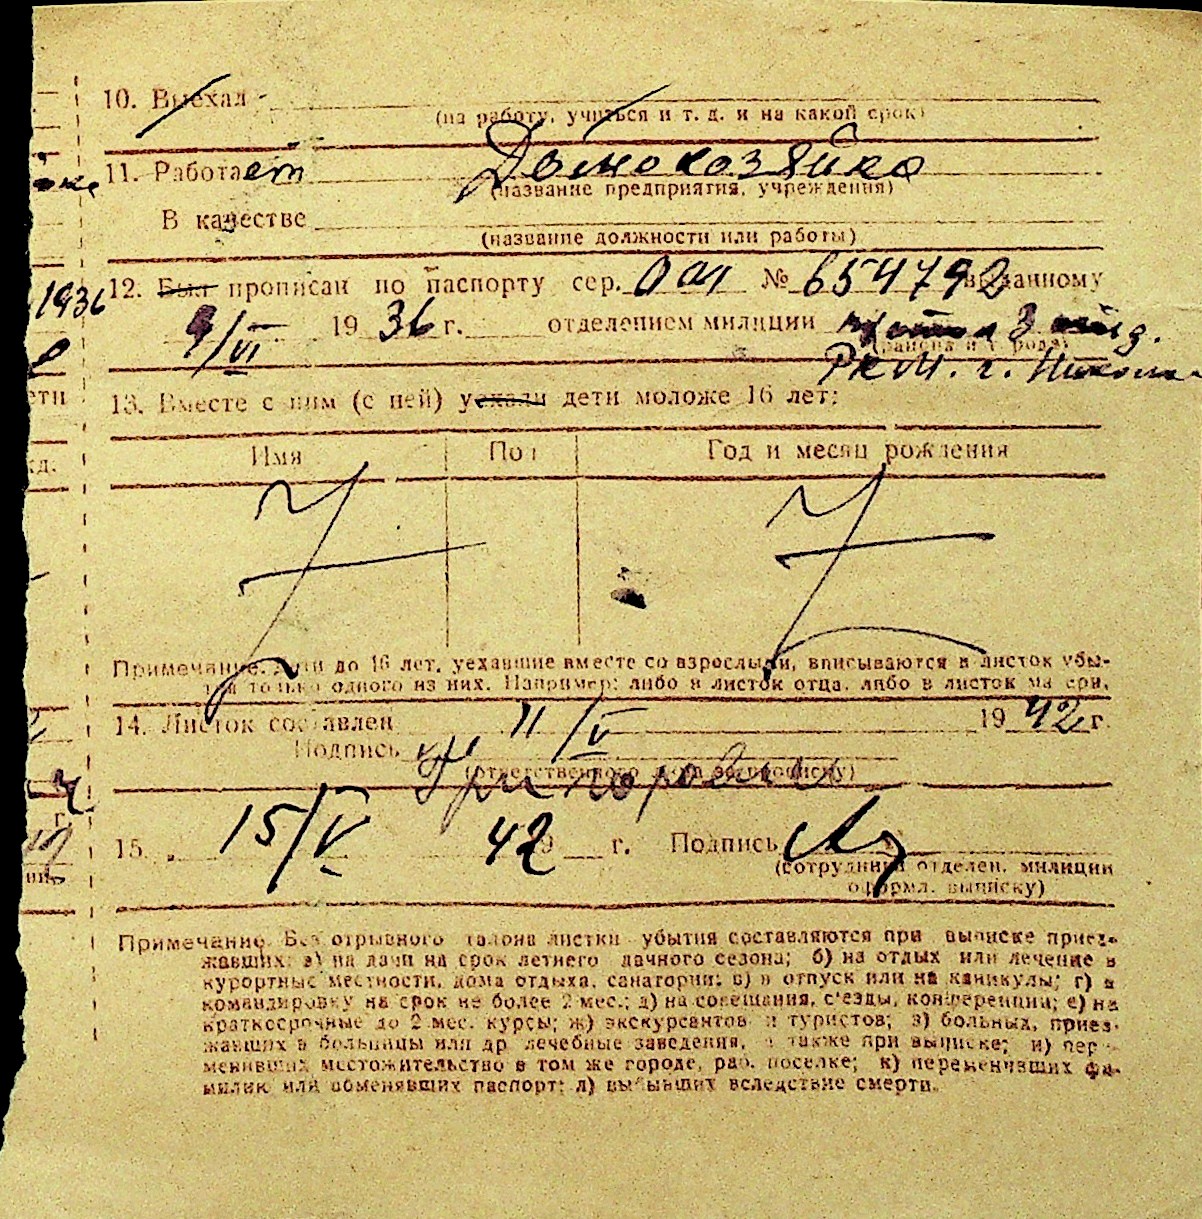 10. Выехал
(на работу, учиться и т. д. и на какой срок)
11. Работает Домохозяйка
(название предприятия, учреждения)
В качестве
(название должности или работы)
1936
12. Был прописан по паспорту сер. № 654792 выданному
9/VI 1936 г. отделением милиции 3
(района и города)
РКМ. г.
13. Вместе с ним (с ней) уехали дети моложе 16 лет:
Имя Пол Год и месяц рождения
Примечание. Дети до 16 лет, уехавшие вместе со взрослыми, вписываются в листок убы-
тия только одного из них. Например: либо в листок отца, либо в листок матери.
14. Листок составлен 11/V 1942 г.
Подпись
(ответственного за выписку)
15. 15/V 42 г. Подпись
(сотрудника отделен. милиции
оформл. выписку)
Примечание. Без отрывного талона листки убытия составляются при выписке приез-
жавших: а) на дачи на срок летнего дачного сезона; б) на отдых или лечение в
курортные местности, дома отдыха, санатории; в) в отпуск или на каникулы; г) в
командировку на срок не более 2 мес.; д) на совещания, с'езды, конференции; е) на
краткосрочные до 2 мес. курсы; ж) экскурсантов и туристов; з) больных, приез-
жавших в больницы или др лечебные заведения, а также при выписке; и) пере-
менивших местожительство в том же городе, раб. поселке; к) переменивших фа-
милию или обменявших паспорт; л) выбывших вследствие смерти.